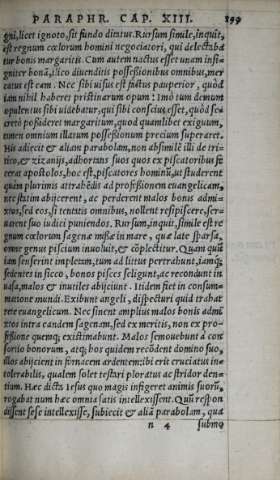 PARAPHR. CAP. XIII. 899
gni, licet ignoto, sit fundo dintus. Rursum simile, inquit,
est regnum cœlorum homini negociatori, qui delectaba
tur bonis margaritis. Cum autem nactus esset unam insi=
gniter bonã, ilico diuenditis possessionibus omnibus, mer
catus est eam. Nec sibi uisus est factus pauperior, quòd
iam nihil haberet pristinarum opum: imò tum demum
opulentus sibi uidebatur, qui sibi conscius esset, quòd se=
cretò possideret margaritum, quod quamlibet exiguum,
tamen omnium illarum possessionum precium superaret.
His adiecit & aliam parabolam, non absimilẽ illi de tri=
tico, & zizanijs, adhortans suos quos ex piscatoribus fe
cerat apostolos, hoc est, piscatores hominũ, ut studerent
quàm plurimis attrahẽdis ad professionem euangelicam,
nec statim abijcerent, ac perderent malos bonis admi=
xtos, sed eos, si tentatis omnibus, nollent resipiscere, ser=
uarent suo iudici puniendos. Rursum, inquit, simile est re
gnum cœlorum sagenæ missæ in mare, quæ latè sparsa,
omne genus piscium inuoluit, & cõplectitur. Quam quũ
iam senserint impletam, tum ad littus pertrahunt, iamq́;
sedentes in sicco, bonos pisces seligunt, ac recondunt in
uasa, malos & inutiles abijciunt. Itidem fiet in consum=
matione mundi. Exibunt angeli, dispecturi quid trahat
rete euangelicum. Nec sinent amplius malos bonis admi
xtos intra eandem sagenam, sed ex meritis, non ex pro=
fessione quemq; existimabunt. Malos semouebunt à con
sortio bonorum, atq; hos quidem recõdent domino suo,
illos abijcient in fornacem ardentem: ibi erit cruciatus in=
tolerabilis, qualem solet testari ploratus ac stridor den=
tium. Hæc dicta Iesus quo magis infigeret animis suorũ,
rogabat num hæc omnia satis intellexissent. Quũ respon
dissent sese intellexisse, subiecit & aliã parabolam, qua
n 4 submo